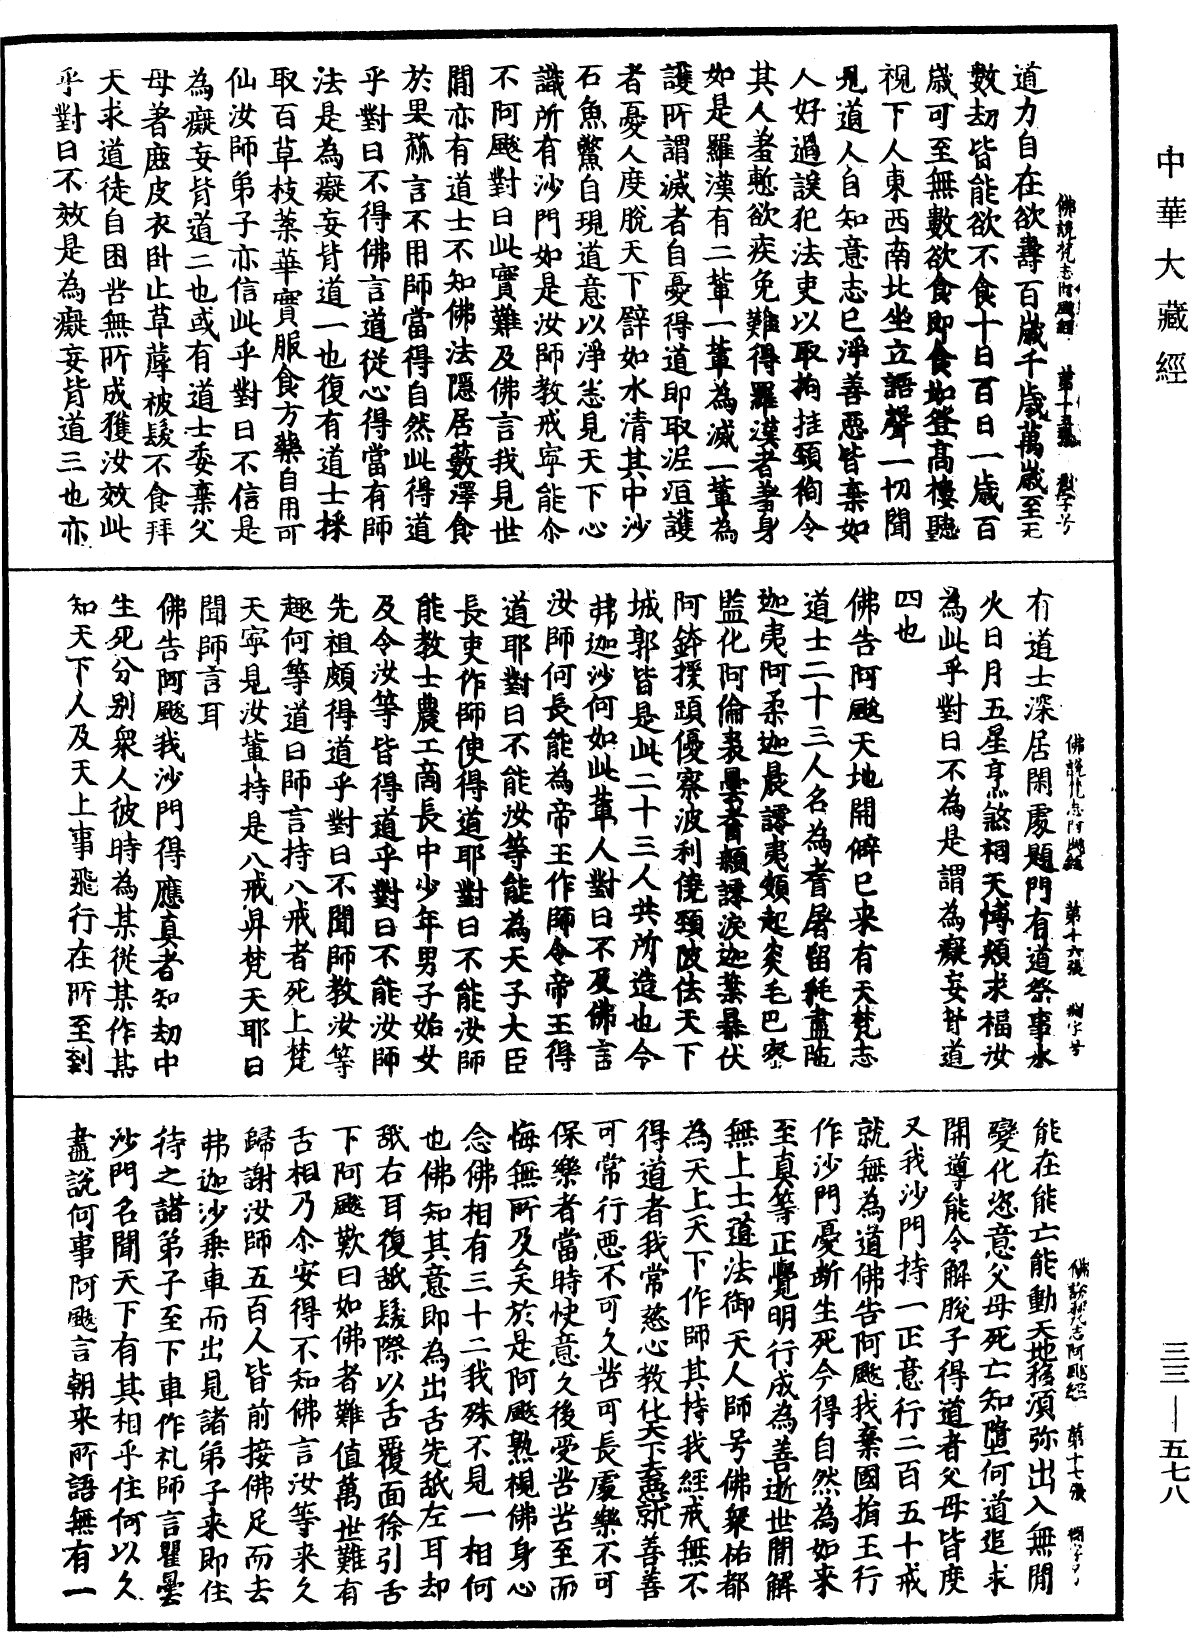 中華大藏經
道力自在欲壽百歲千歲萬歲至无
數劫皆能欲不食十日百日一歲百
歲可至無數欲食即食如登高樓聽
視下人東西南北坐立語聲一切聞
見道人自知意志已淨善惡皆棄如
人好過誤犯法吏以取拘挂頸徇令
其人羞慙欲疾免難得羅漢者着身
如是羅漢有二輩一輩為滅一輩為
護所謂滅者自憂得道即取泥洹護
者憂人度脫天下譬如水清其中沙
石魚鱉自現道意以淨悉見天下心
識所有沙門如是汝師教戒寧能尒
不阿颰對曰此實難及佛言我見世
間亦有道士不知佛法隱居藪澤食
於果蓏言不用師當得自然此得道
乎對曰不得佛言道從心得當有師
法是為癡妄背道一也復有道士採
取百草枝葉華實服食方藥自用可
仙汝師弟子亦信此乎對曰不信是
為癡妄背道二也或有道士委棄父
母著鹿皮衣臥止草蓐被髮不食拜
天求道徒自困苦無所成獲汝效此
乎對曰不效是為癡妄背道三也亦
佛說梵志阿颰經 第十五張
有道士深居閑處題門有道祭事水
火日月五星烹煞祠天博頰求福汝
為此乎對曰不為是謂為癡妄背道
四也
佛告阿颰天地開闢已來有天梵志
道士二十三人名為耆屠留耗盡陁
迦夷阿柔迦晨譚夷頞超炎毛巴蜜
監化阿倫裘曇耆頞譚淚迦葉暴伏
阿鋒援頭優察波利僥頸陂佉天下
城郭皆是此二十三人共所造也今
弗迦沙何如此輩人對曰不及佛言
汝師何長能為帝王作師令帝王得
道耶對曰不能汝等能為天子大臣
長吏作師使得道耶對曰不能汝師
能教士農工商長中少年男子始女
及令汝等皆得道乎對曰不能汝師
先祖頗得道乎對曰不聞師教汝等
趣何等道曰師言持八戒者死上梵
天寧見汝輩持是八戒昇梵天耶曰
聞師言耳
佛告阿颰我沙門得應真者知劫中
生死分別眾人彼時為某從某作某
知天下人及天上事飛行在所至到
佛說梵志阿颰經 第十六張
能在能亡能動天地移須弥出入無間
變化恣意父母死亡知墮何道追求
開導能令解脫子得道者父母皆度
又我沙門持一正意行二百五十戒
就無為道佛告阿颰我棄國捐王行
作沙門憂斷生死今得自然為如來
至真等正覺明行成為善逝世間解
無上士道法御天人師号佛眾祐都
為天上天下作師其持我經戒無不
得道者我常慈心教化天下憙就善善
可常行惡不可久苦可長處樂不可
保樂者當時快意久後受苦苦至而
悔無所及矣於是阿颰熟視佛身心
念佛相有三十二我殊不見一相何
也佛知其意即為出舌先舐左耳却
舐右耳復舐髮際以舌覆面徐引舌
下阿颰歎曰如佛者難值萬世難有
舌相乃尒安得不知佛言汝等來久
歸謝汝師五百人皆前接佛足而去
弗迦沙乘車而出見諸弟子來即住
待之諸弟子至下車作礼師言瞿曇
沙門名聞天下有其相乎住何以久
盡說何事阿颰言朝來所語無有一
佛說梵志阿颰經 第十七張
三三—五七八